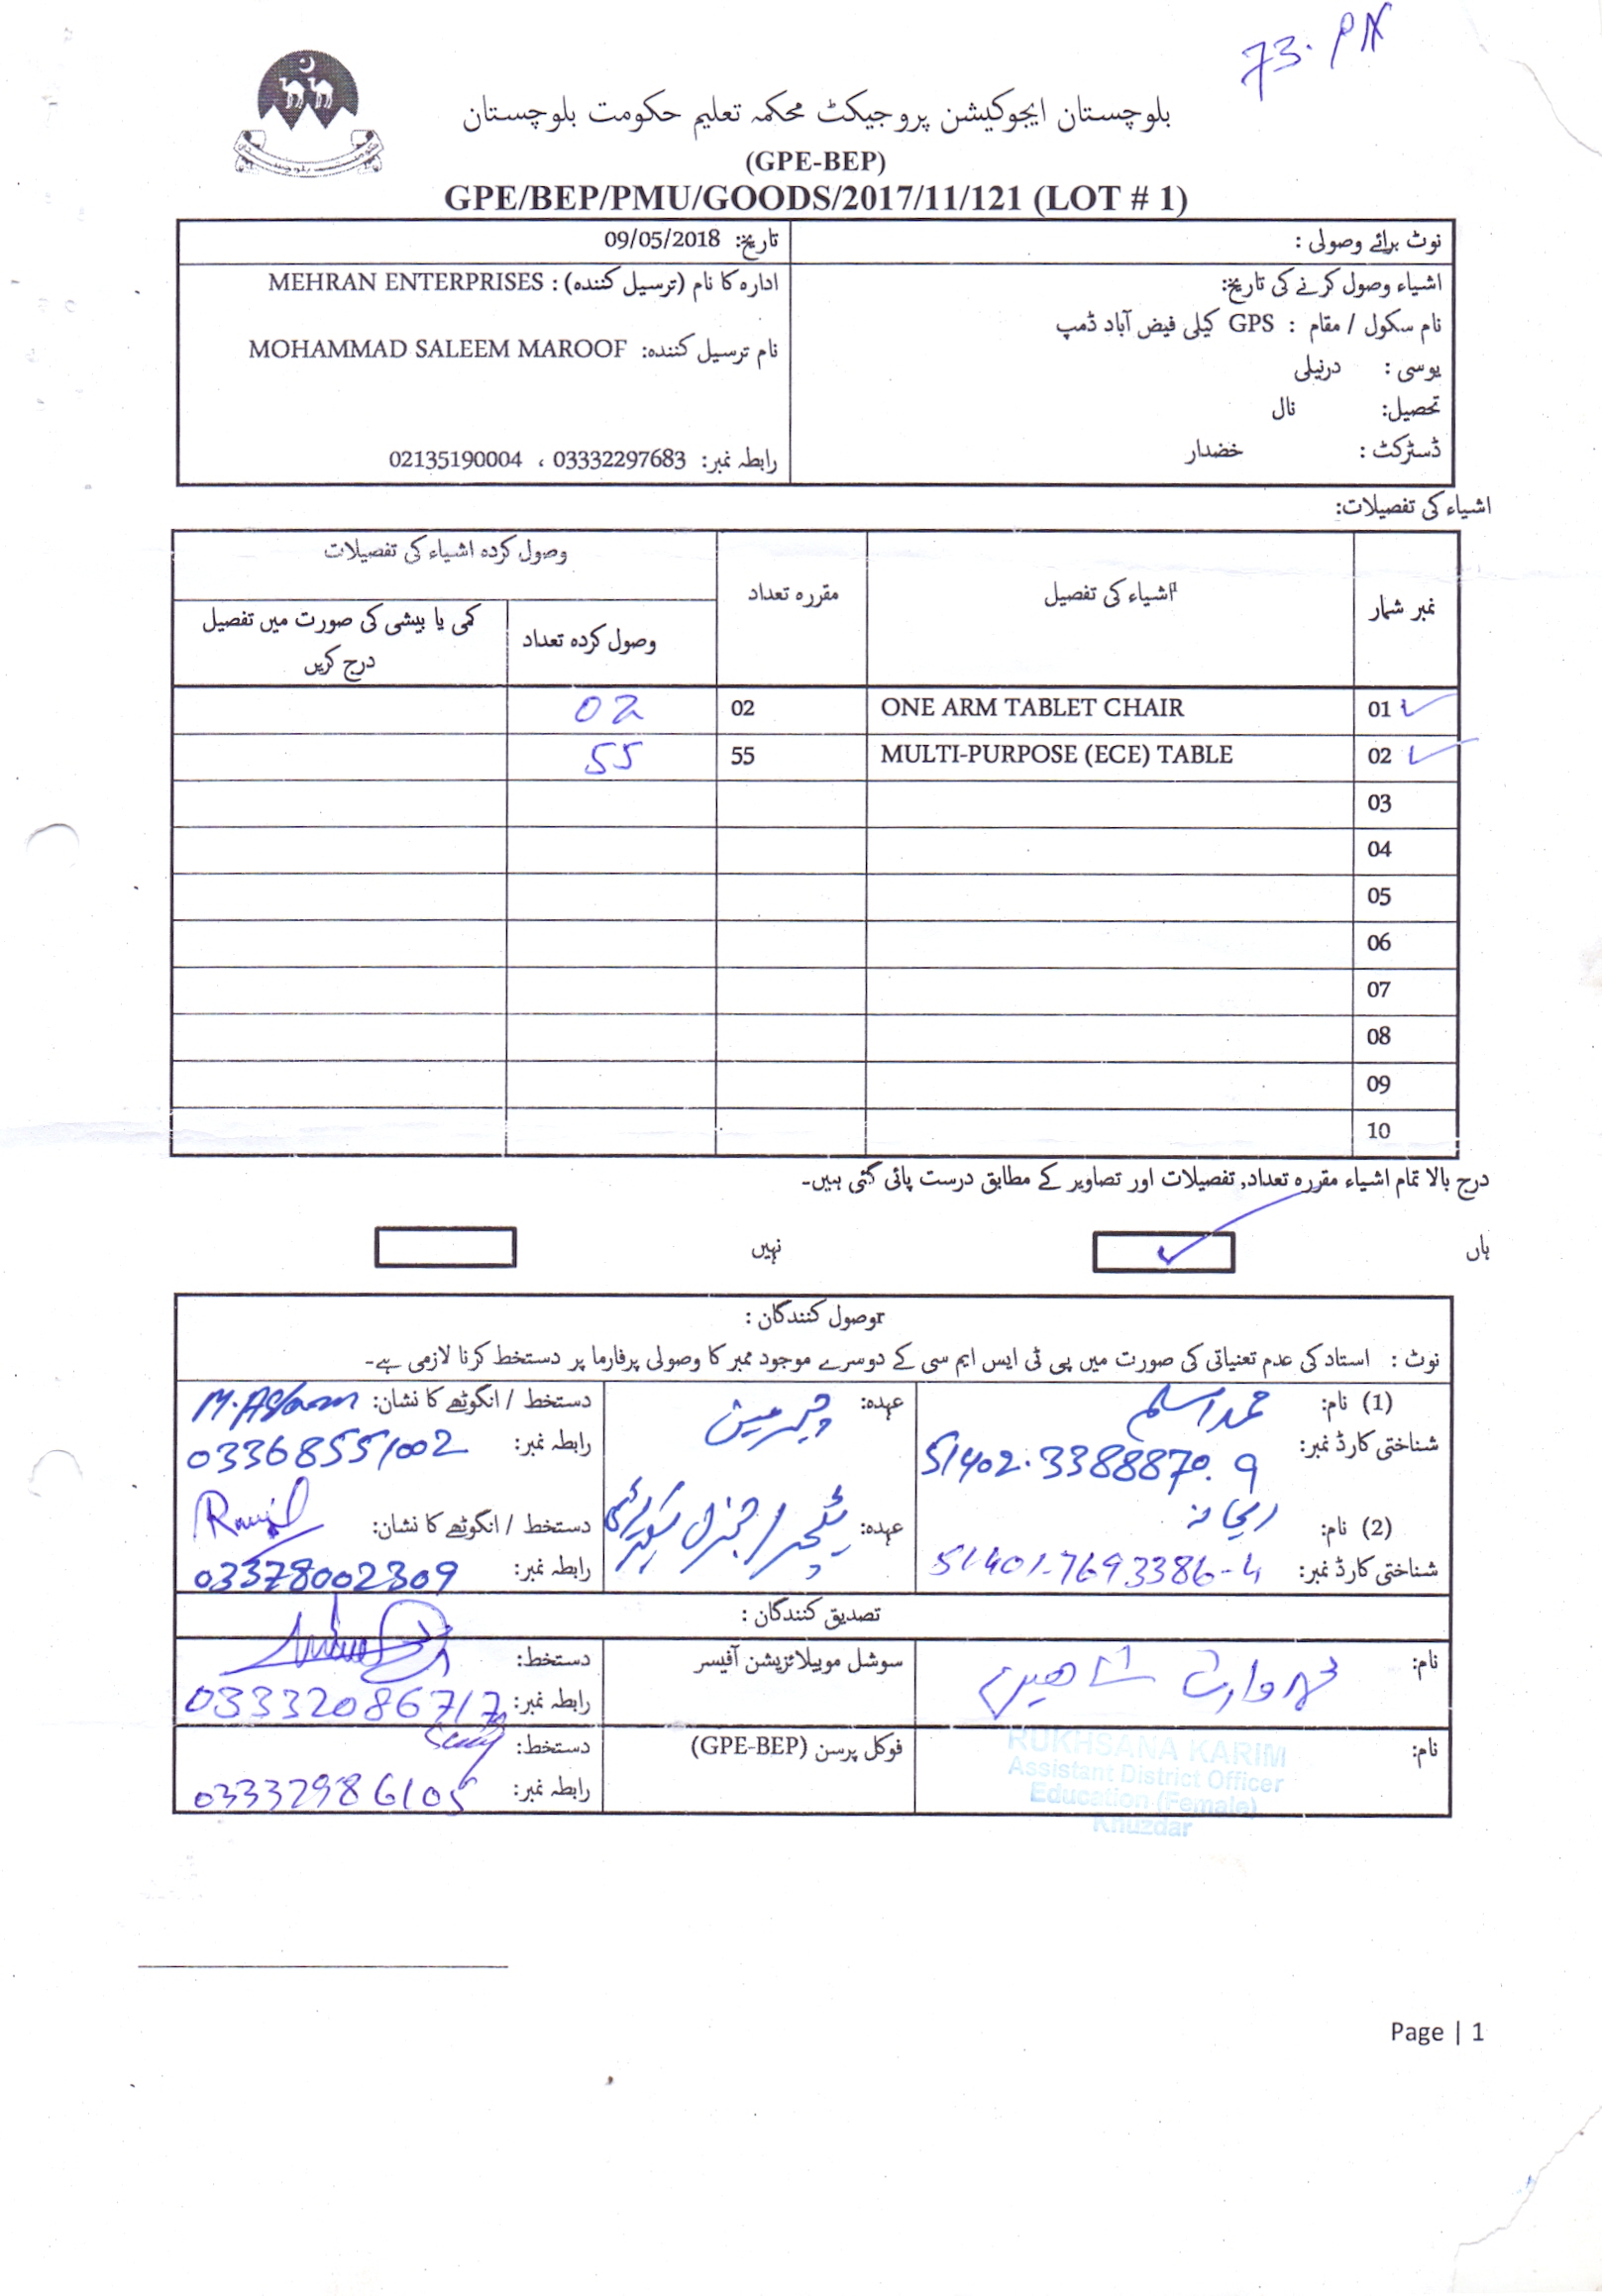 73. PN
بلوچستان ایجوکیشن پروجیکٹ محکمہ تعلیم حکومت بلوچستان
(GPE-BEP)
GPE/BEP/PMU/GOODS/2017/11/121 (LOT # 1)
نوٹ برائے وصولی :
تاریخ: 09/05/2018
اشیاء وصول کرنے کی تاریخ:
نام سکول / مقام : GPS کیلی فیض آباد ڈمپ
یوسی : درنیلی
تحصیل: نال
ڈسٹرکٹ : خضدار
ادارہ کا نام (ترسیل کنندہ) : MEHRAN ENTERPRISES
نام ترسیل کنندہ: MOHAMMAD SALEEM MAROOF
رابطہ نمبر: 03332297683 ، 02135190004
اشیاء کی تفصیلات:
نمبر شمار اشیاء کی تفصیل مقررہ تعداد وصول کردہ اشیاء کی تفصیلات
وصول کردہ تعداد کمی یا بیشی کی صورت میں تفصیل درج کریں
01 ONE ARM TABLET CHAIR 02 02
02 MULTI-PURPOSE (ECE) TABLE 55 55
03
04
05
06
07
08
09
10
درج بالا تمام اشیاء مقررہ تعداد, تفصیلات اور تصاویر کے مطابق درست پائی گئی ہیں۔
ہاں نہیں
وصول کنندگان :
نوٹ : استاد کی عدم تعنیاتی کی صورت میں پی ٹی ایس ایم سی کے دوسرے موجود ممبر کا وصولی پرفارما پر دستخط کرنا لازمی ہے۔
(1) نام: محمد اسلم عہدہ: چیرمین دستخط / انگوٹھے کا نشان: M.Aslam
شناختی کارڈ نمبر: 51402.3388870.9 رابطہ نمبر: 03368551002
(2) نام: ریحانہ عہدہ: ٹیچر / جنرل سیکرٹری دستخط / انگوٹھے کا نشان:
شناختی کارڈ نمبر: 51401-7693386-4 رابطہ نمبر: 03378002309
تصدیق کنندگان :
نام: محمد وارث شاھین سوشل موبیلائزیشن آفیسر دستخط:
رابطہ نمبر: 03332086717
نام: فوکل پرسن (GPE-BEP) دستخط:
رابطہ نمبر: 03332986105
RUKHSANA KARIM
Assistant District Officer
Education (Female)
Khuzdar
Page | 1